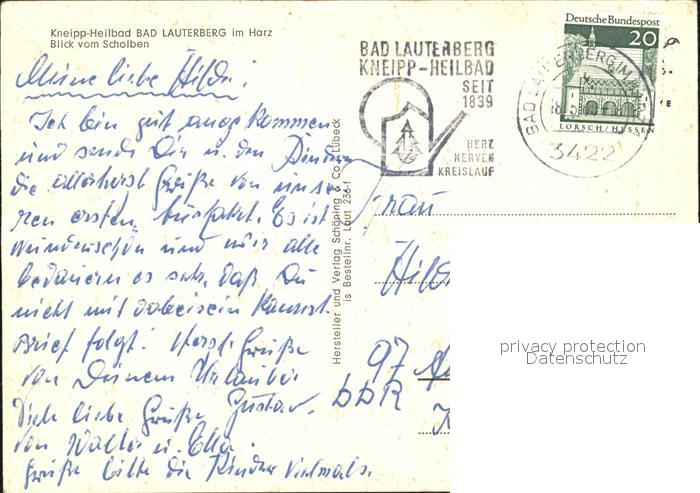 Kneipp-Heilbad BAD LAUTERBERG im Harz
Blick vom Scholben
Meine liebe Hilde!
Ich bin gut angekommen
und sende Dir u. den Kindern
die allerherzl. Grüße von unse-
ren ersten Es ist
wunderschön und wir alle
bedauern es sehr, daß Du
nicht mit dabeisein kannst.
Brief folgt! Herzl. Grüße
von Deinem Urlauber
Gustav.
Viele liebe Grüße
von Walter u. Ella.
Grüße bitte die Kinder vielmals.
Hersteller und Verlag Schöning & Co., Lübeck
is Bestellnr. Laut 236
BAD LAUTERBERG
KNEIPP-HEILBAD
SEIT
1839
HERZ
NERVEN
KREISLAUF
BAD LAUTERBERG IM HARZ
3422
Deutsche Bundespost
20
LORSCH/HESSEN
Frau
Hild
97
DDR
privacy protection
Datenschutz